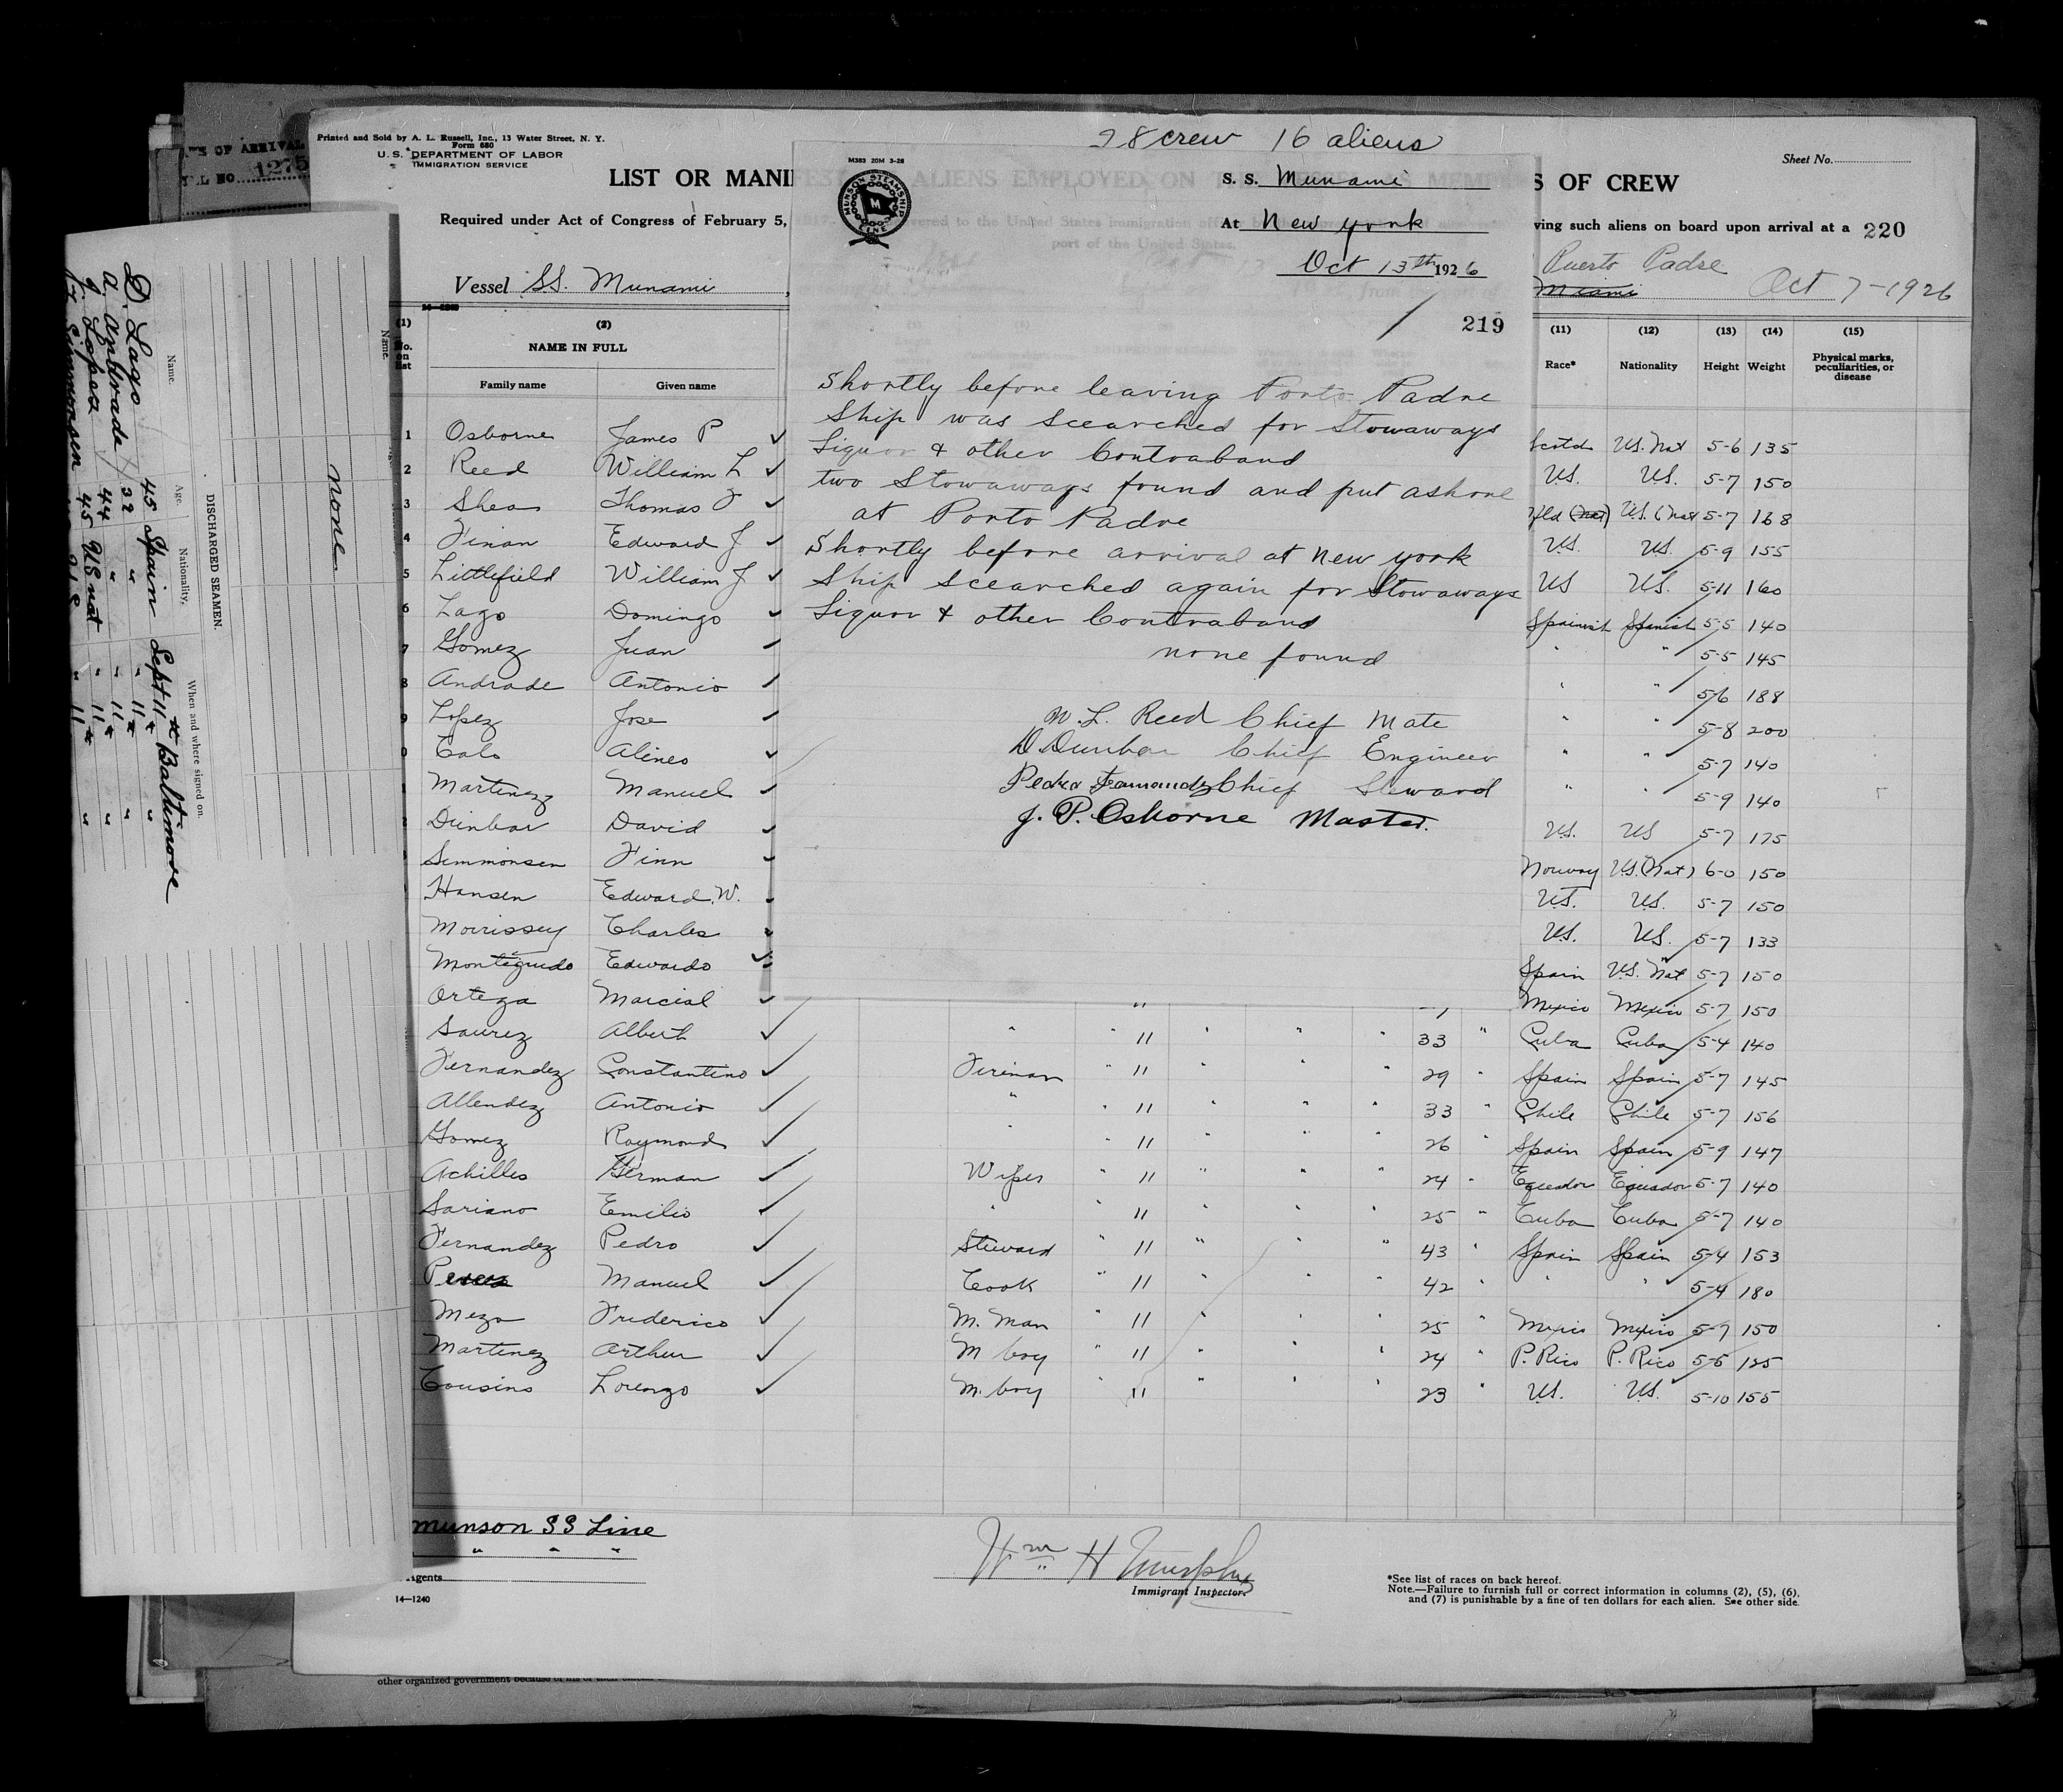 28 crew 16 aliens
Printed and Sold by A. L. Russell, Inc., 13 Water Street, N. Y.
Form 680
U. S. DEPARTMENT OF LABOR
IMMIGRATION SERVICE
Sheet No.
LIST OR MANI
S OF CREW
Required under Act of Congress of February 5,
ving such aliens on board upon arrival at a 220
Vessel SS. Munami
Puerto Padre
Miami Oct 7-1926
M383 20M 3-26
MUNSON STEAMSHIP LINE
M
S. S. Munami
At New York
Oct 13th 1926
219
Shortly before leaving Porto Padre
Ship was scearched for Stowaways
Liquor & other Contraband
two Stowaways found and put ashore
at Porto Padre
Shortly before arrival at New York
Ship scearched again for Stowaways
Liquor & other Contraband
none found
W. L. Reed Chief Mate
D Dunbar Chief Engineer
Pedro Fernandez Chief Steward
J. P. Osborne Master.
(1) (2) (11) (12) (13) (14) (15)
No. on list NAME IN FULL Race* Nationality Height Weight Physical marks, peculiarities, or disease
Family name Given name
1 Osborne James P Scotch US. Nat 5-6 135
2 Reed William L US. US. 5-7 150
3 Shea Thomas J Nfld (nat) U.S. (nat 5-7 168
4 Finan Edward J US. US. 5-9 155
5 Littlefield William J US US. 5-11 160
6 Lago Domingo Spanish Spanish 5-5 140
7 Gomez Juan " " 5-5 145
8 Andrade Antonio " " 5-6 188
9 Lopez Jose " " 5-8 200
0 Calo Alineo " " 5-7 140
Martinez Manuel " " 5-9 140
Dunbar David US. US 5-7 175
Simmonsen Finn Norway US.(Nat) 6-0 150
Hansen Edward.W. US. US. 5-7 150
Morrissey Charles US. US. 5-7 133
Monteguedo Edwardo Spain U.S. Nat 5-7 150
Ortega Marcial " Mexico Mexico 5-7 150
Saurez Albert " " 11 " " " 33 " Cuba Cuba 5-4 140
Fernandez Constantino Fireman " 11 " " " 29 " Spain Spain 5-7 145
Allendez Antonio " " 11 " " " 33 " Chile Chile 5-7 156
Gomez Raymond " " 11 " " " 26 " Spain Spain 5-9 147
Achilles German Wiper " 11 " " " 24 " Equador Equador 5-7 140
Sariano Emilio " " 11 " " " 25 " Cuba Cuba 5-7 140
Fernandez Pedro Steward " 11 " " " 43 " Spain Spain 5-4 153
Manuel Cook " 11 " " " 42 " " " 5-4 180
Meza Frederico M. Man " 11 " " " 25 " Mexico Mexico 5-7 150
Martinez Arthur M boy " 11 " " " 24 " P. Rico P. Rico 5-5 125
Cousins Lorenzo M. boy " 11 " " " 23 " US. US. 5-10 155
Munson SS Line
" " "
Agents
14—1240
Wm H Murphy
Immigrant Inspector.
*See list of races on back hereof.
Note.—Failure to furnish full or correct information in columns (2), (5), (6),
and (7) is punishable by a fine of ten dollars for each alien. See other side.
other organized government because of his or their
OF ARRIVAL
NO. 1275
Name.
none
DISCHARGED SEAMEN.
Name. Age. Nationality. When and where signed on.
D. Lago 45 Spain Sept 11th Baltimore
A. Andrade 32 " " 11 " "
J. Lopez 44 " " 11 " "
F. Simmonsen 45 US nat " 11 " "